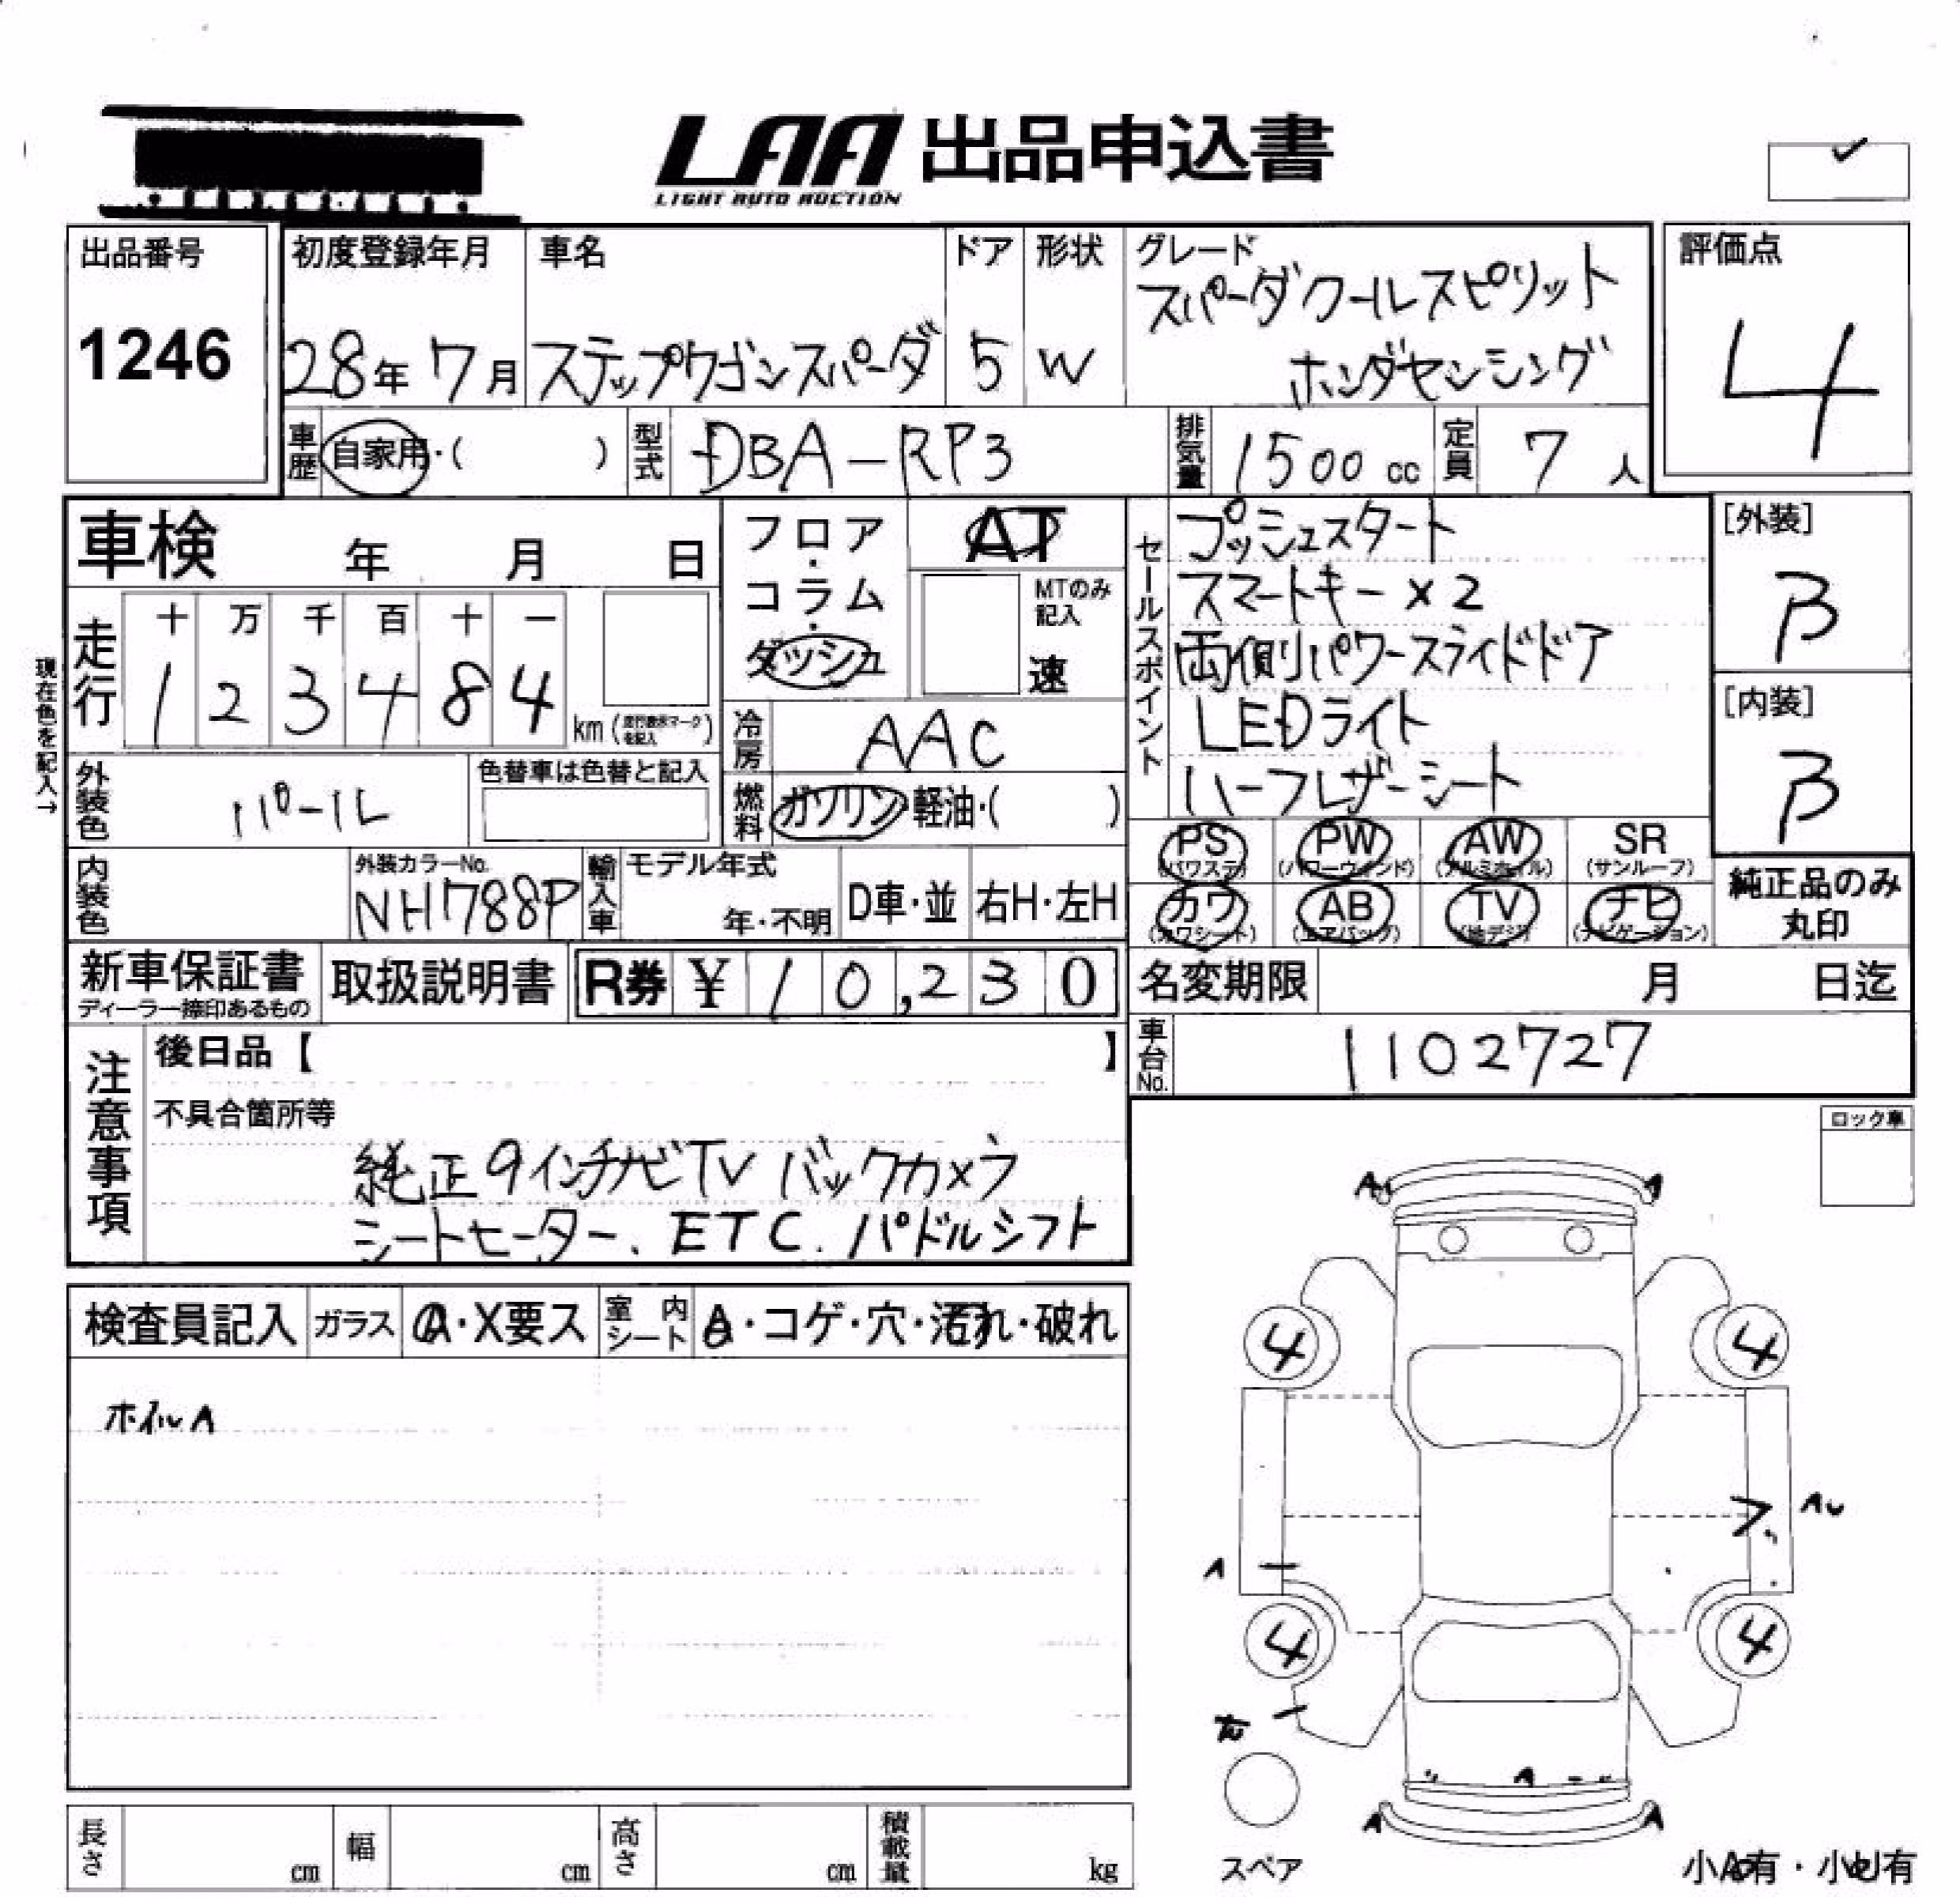 LAA 出品申込書
LIGHT AUTO AUCTION
出品番号 初度登録年月 車名 ドア 形状 グレード 評価点
スパーダクールスピリット
1246 28年 7月 ステップワゴンスパーダ 5 W ホンダセンシング 4
車歴 自家用・( ) 型式 DBA-RP3 排気量 1500 cc 定員 7 人
車検 年 月 日
フロア・コラム・ダッシュ
AT
MTのみ記入
速
走行 十 万 千 百 十 一
1 2 3 4 8 4 km (走行数未マークを記入)
現在色を記入→
冷房 AAC
外装色 パール 色替車は色替と記入
燃料 ガソリン・軽油・( )
セールスポイント
プッシュスタート
スマートキー×2
両側パワースライドドア
LEDライト
ハーフレザーシート
[外装]
B
[内装]
B
PS (パワステ) PW (パワーウインド) AW (アルミホイル) SR (サンルーフ)
カワ (カワシート) AB (エアバッグ) TV (地デジ) ナビ (ナビゲーション)
純正品のみ
丸印
内装色 外装カラーNo. NH788P 輸入車 モデル年式 年・不明 D車・並 右H・左H
新車保証書 ディーラー捺印あるもの 取扱説明書 R券 ¥ 10,230 名変期限 月 日迄
車台No. 1102727
注意事項 後日品【 】
不具合箇所等
純正9インチナビTV バックカメラ
シートヒーター、ETC. パドルシフト
ロック車
検査員記入 ガラス A・X要ス 室内シート A・コゲ・穴・汚れ・破れ
ホイルA
A A
4 4
A AU
4 4
A
A A
スペア
小A有・小U有
長さ cm 幅 cm 高さ cm 積載量 kg